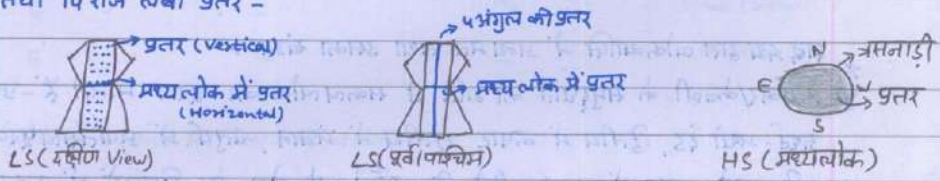 प्रतर -
प्रतर (Vertical)
मध्यलोक में प्रतर
(Horizontal)
LS (दक्षिण View)
५ अंगुल की प्रतर
मध्यलोक में प्रतर
LS (पूर्व/पश्चिम)
N
त्रसनाड़ी
E
W
प्रतर
S
HS (मध्यलोक)